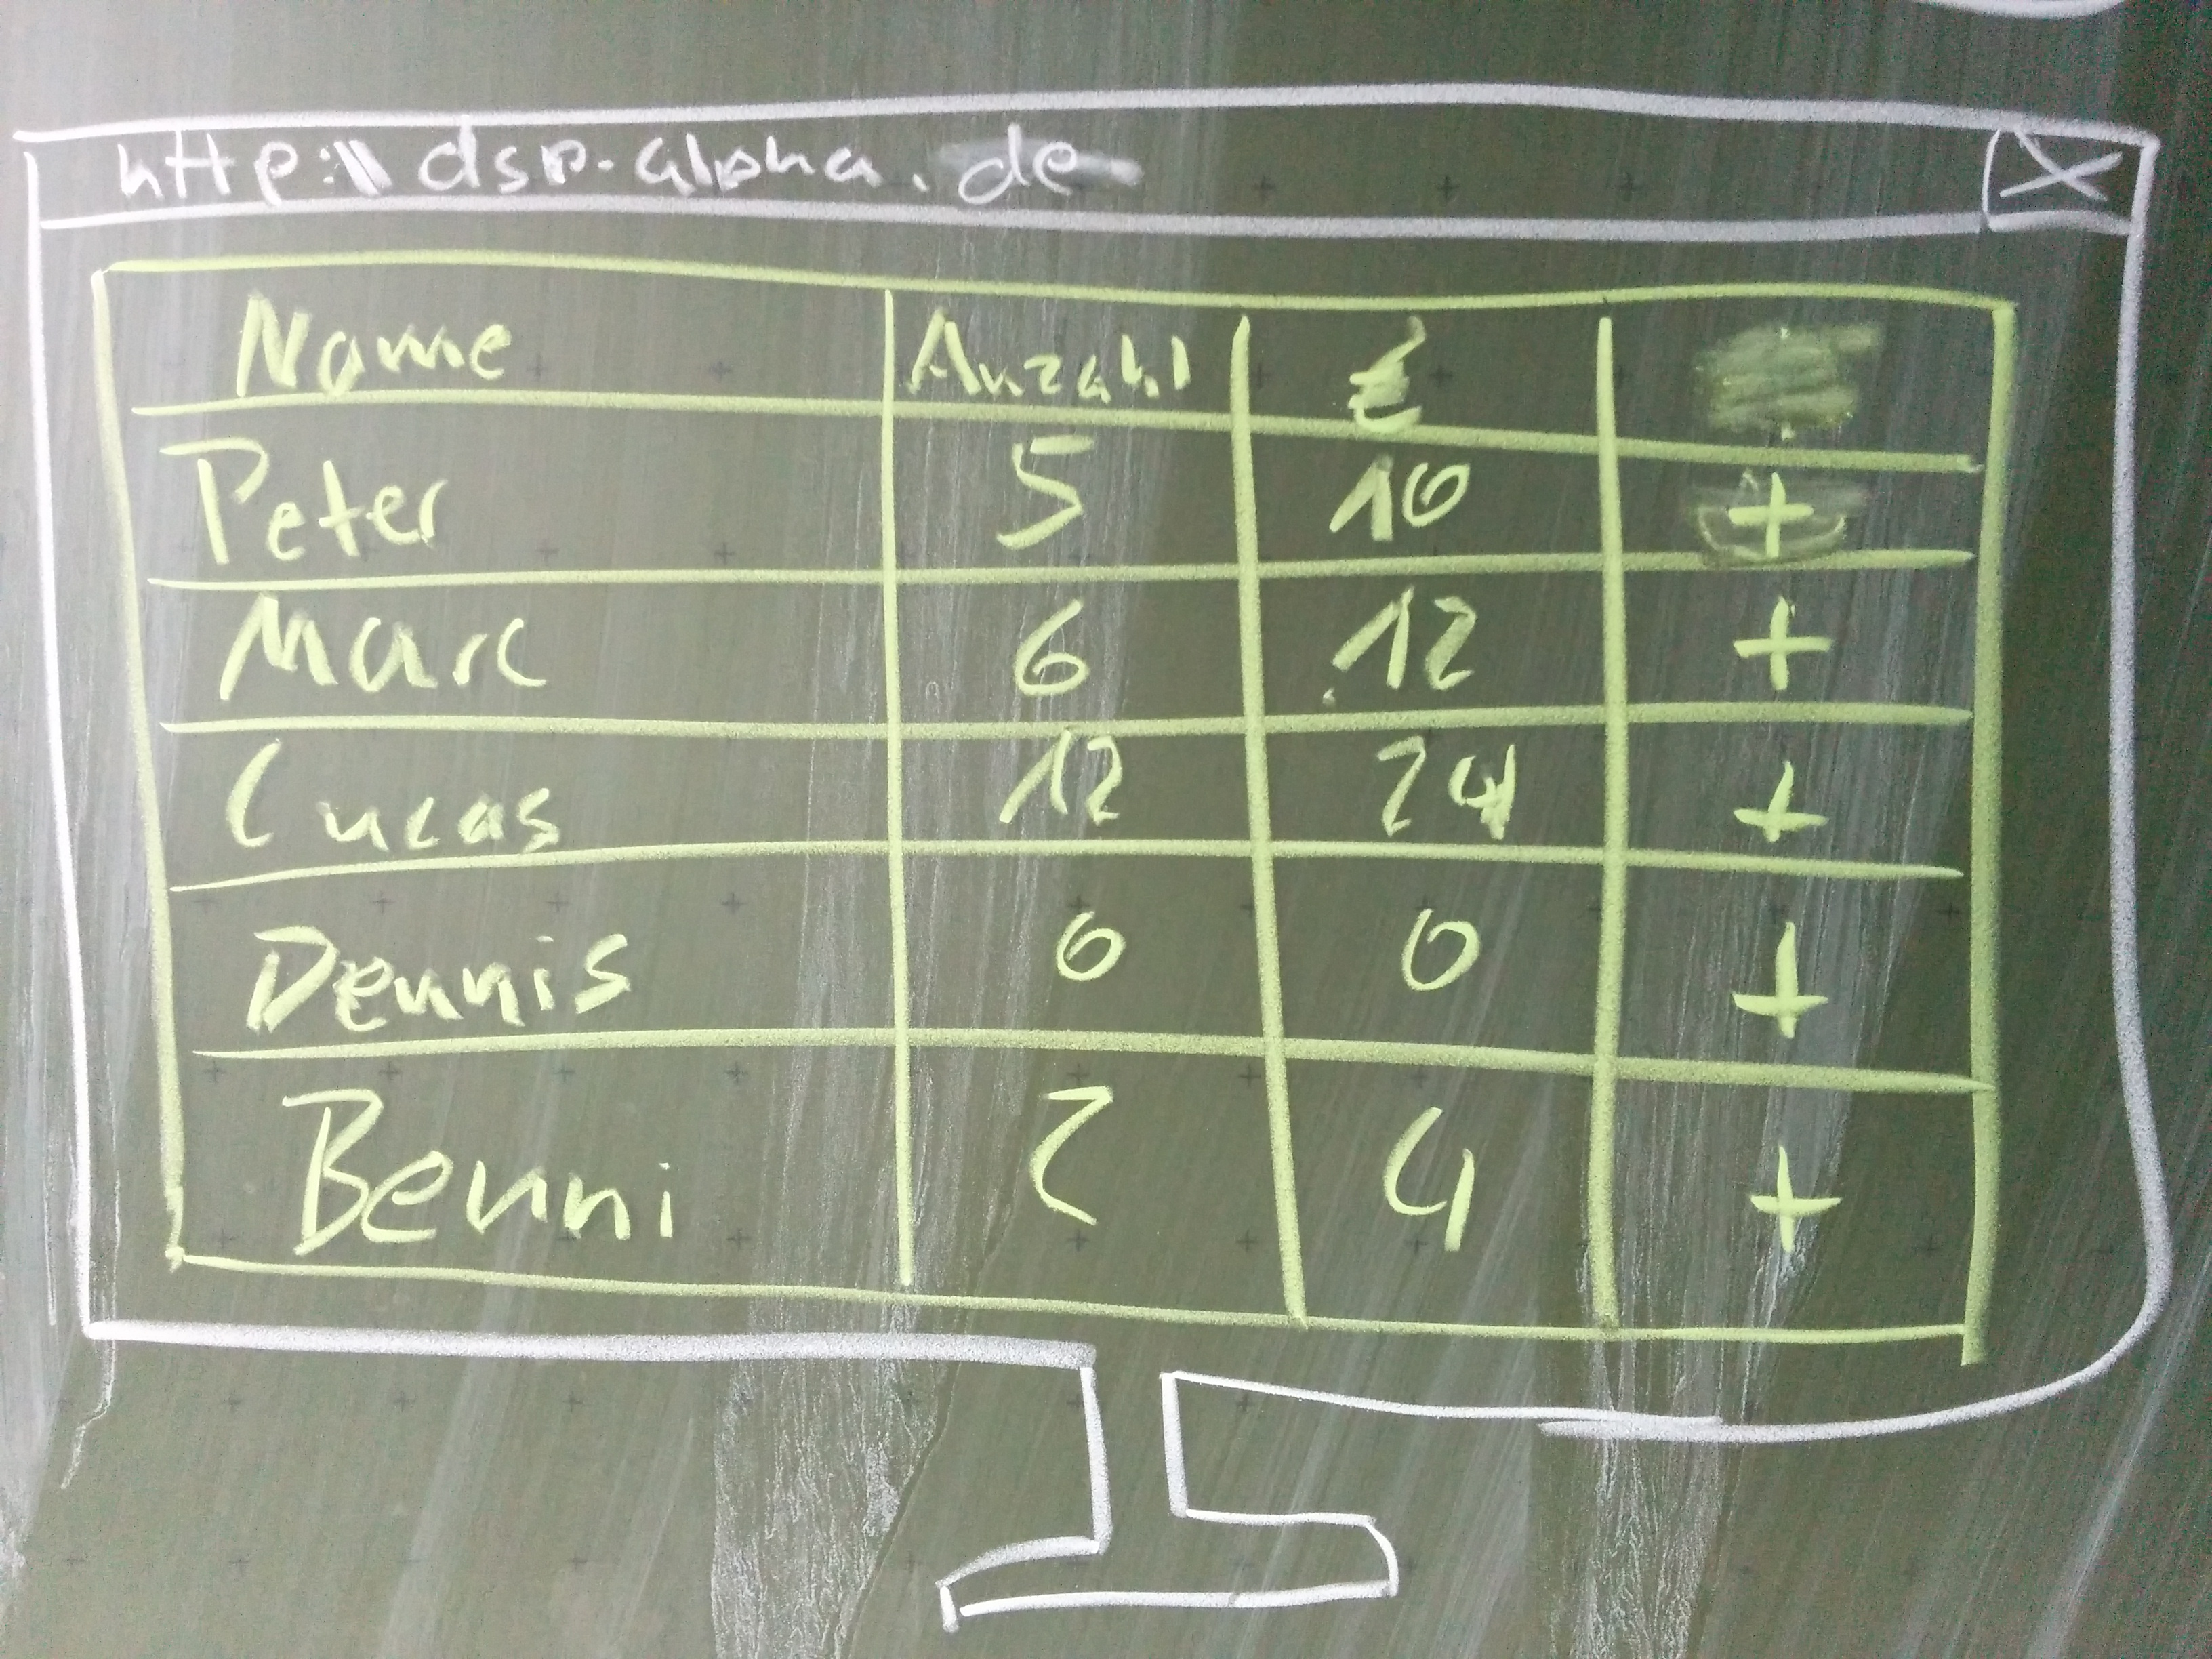 http:\\ dsp-alpha.de X
Name Anzahl €
Peter 5 10 +
Marc 6 12 +
Lucas 12 24 +
Dennis 0 0 +
Benni 2 4 +